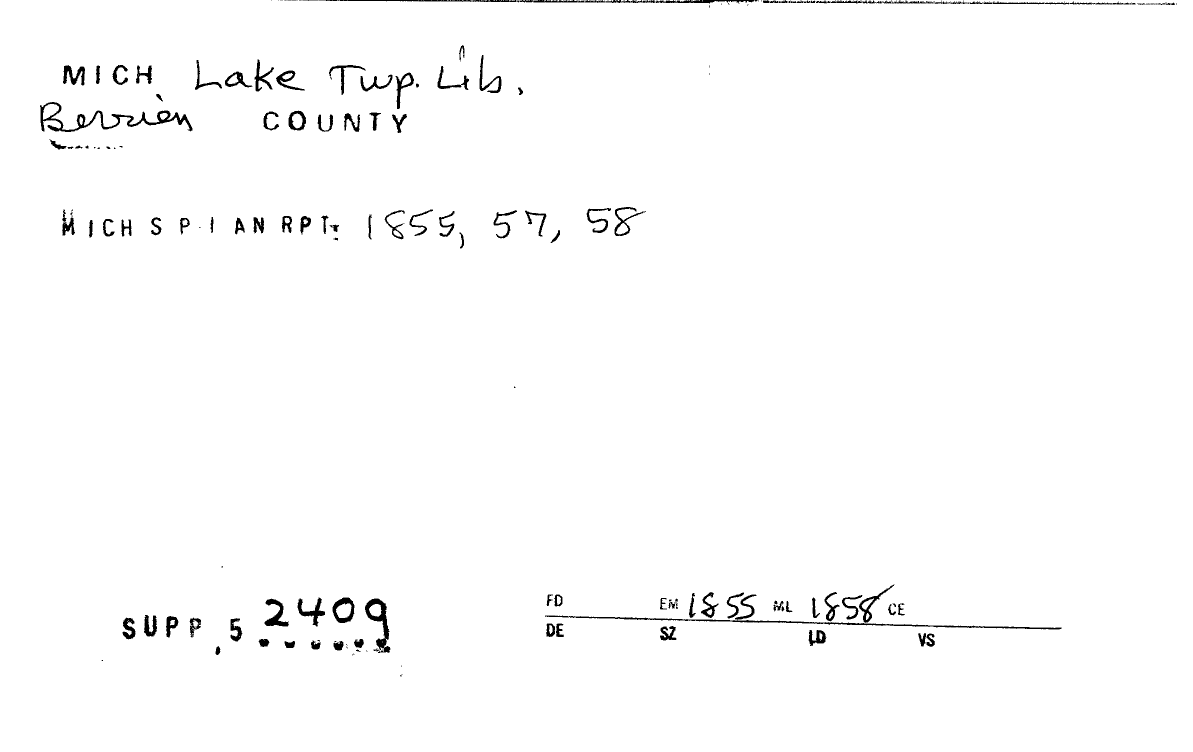 MICH. Lake Twp. Lib.
Berrien COUNTY
MICH S P I AN RPT: 1855, 57, 58
SUPP. 5 2409
FD EM 1855 ML 1858 CE
DE SZ LD VS